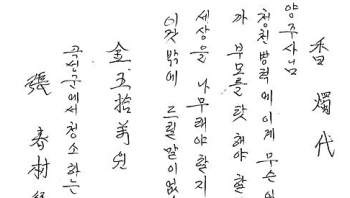 香燭代
양주사님
청천 벽력에 이게 무슨
까 부모를 탓 해야 할
세상을 나무래야 할지
이것 밖에 드릴 말이 없
金五拾萬원
곡성군에서 청소하는
張春材